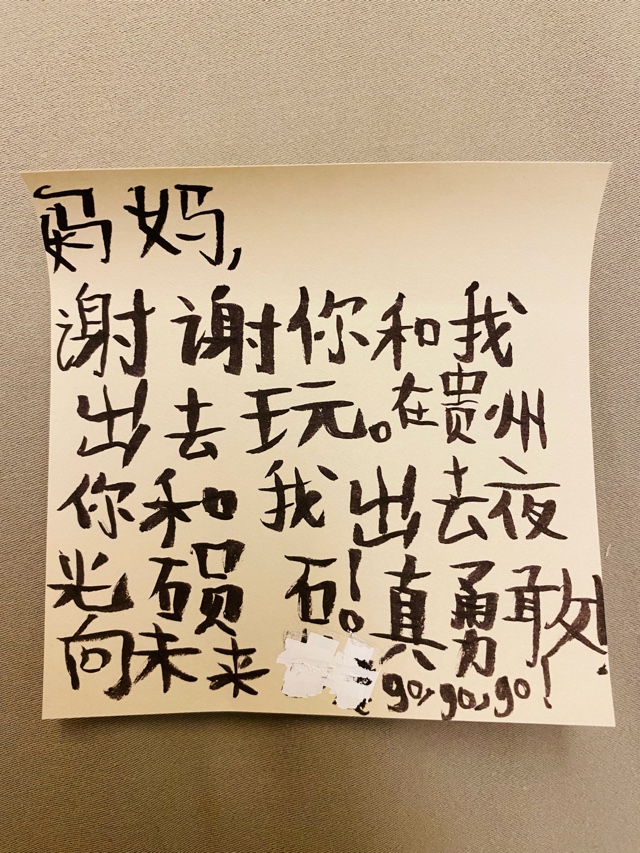 妈妈,
谢谢你和我
出去玩。在贵州
你和我出去夜
光陨石!。真勇敢!
向未来 go,go,go!